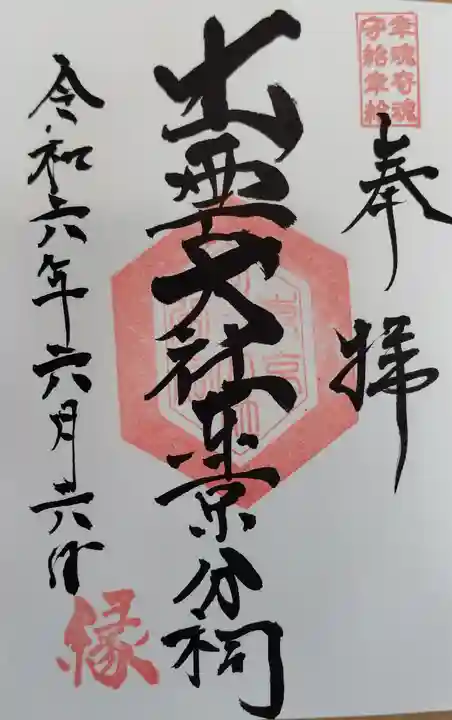 幸魂奇魂
守給幸給
奉拝
出雲大社東京分祠
令和六年六月廿六日
縁